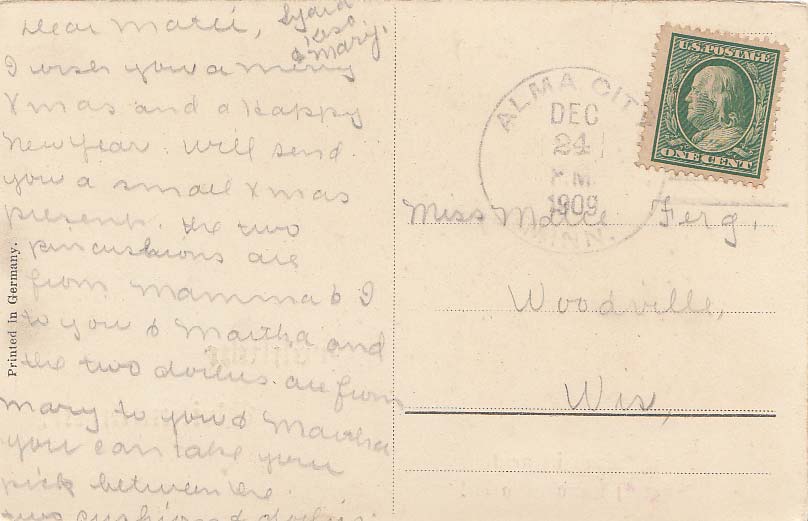 Dear Marie,
& Mary.
I wish you a merry
Xmas and a happy
New Year. Will send
you a small Xmas
present. the two
pincushions are
from Mamma & I
to you & Martha and
the two doilies are from
Mary to you & Martha
you can take your
pick between the
two cushions & doilies
Printed in Germany.
ALMA CITY
DEC
24
P.M.
1909
MINN.
U.S. POSTAGE
ONE CENT
Miss Marie Ferg.
Woodville,
Wis,